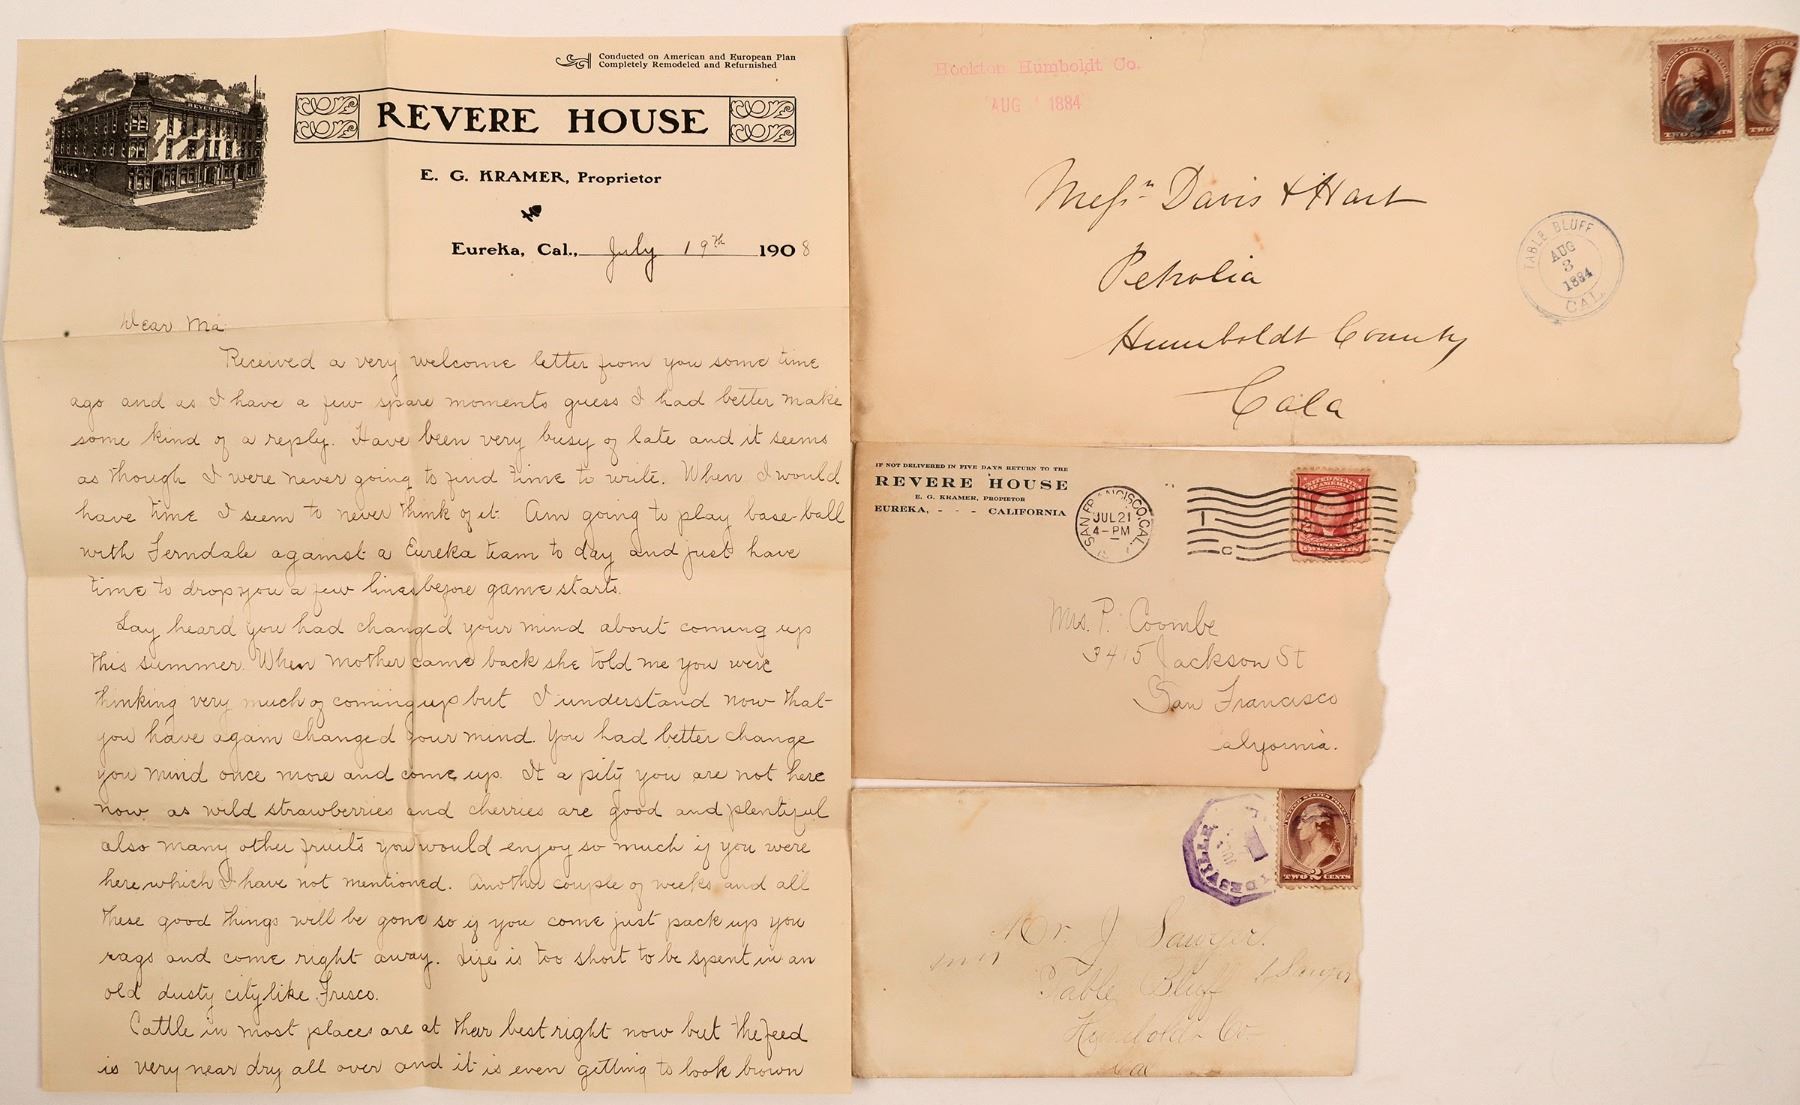 Conducted on American and European Plan
Completely Remodeled and Refurnished
REVERE HOUSE
REVERE HOUSE
E. G. KRAMER, Proprietor
Eureka, Cal., July 19th 1908
Dear Ma
Received a very welcome letter from you some time
ago and as I have a few spare moments guess I had better make
some kind of a reply. Have been very busy of late and it seems
as though I were never going to find time to write. When I would
have time I seem to never think of it. Am going to play base-ball
with Ferndale against a Eureka team to day and just have
time to drop you a few lines before game starts.
Say heard you had changed your mind about coming up
this summer. When mother came back she told me you were
thinking very much of coming up but I understand now that
you have again changed your mind. You had better change
you mind once more and come up. It a pity you are not here
now as wild strawberries and cherries are good and plentiful
also many other fruits you would enjoy so much if you were
here which I have not mentioned. Another couple of weeks and all
these good things will be gone so if you come just pack up you
rags and come right away. Life is too short to be spent in an
old dusty city like Frisco.
Cattle in most places are at their best right now but the feed
is very near dry all over and it is even getting to look brown
Hookton Humboldt Co.
AUG 1 1884
TWO CENTS
TWO
Messrs Davis & Hart
Petrolia
Humboldt County
Cala
TABLE BLUFF
AUG
3
1884
CAL.
IF NOT DELIVERED IN FIVE DAYS RETURN TO THE
REVERE HOUSE
E. G. KRAMER, PROPIETOR
EUREKA, - - - CALIFORNIA
SAN FRANCISCO, CAL.
JUL 21
4-PM
1
C
UNITED STATES
OF AMERICA
TWO CENTS
Mrs. P. Coombe
3415 Jackson St
San Francisco
California.
TWO 2 CENTS
Mr. J Sawyer.
Table Bluff
Humboldt Co
Cal